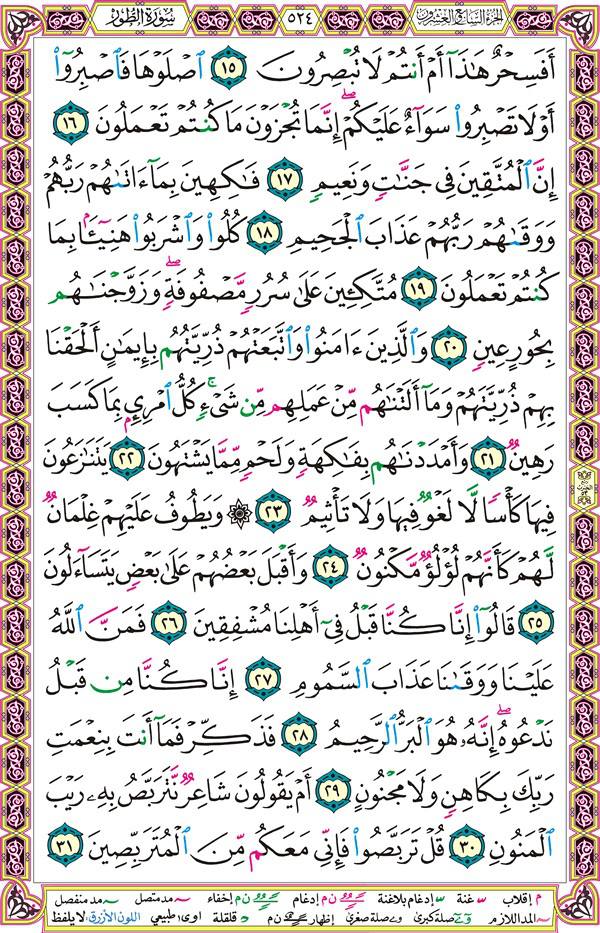 سورة الطور ٥٢٤ الجزء السابع والعشرون
أَفَسِحْرٌ هَٰذَآ أَمْ أَنتُمْ لَا تُبْصِرُونَ ١٥ ٱصْلَوْهَا فَٱصْبِرُوٓا۟
أَوْ لَا تَصْبِرُوا۟ سَوَآءٌ عَلَيْكُمْ ۖ إِنَّمَا تُجْزَوْنَ مَا كُنتُمْ تَعْمَلُونَ ١٦
إِنَّ ٱلْمُتَّقِينَ فِى جَنَّٰتٍ وَنَعِيمٍ ١٧ فَٰكِهِينَ بِمَآ ءَاتَىٰهُمْ رَبُّهُمْ
وَوَقَىٰهُمْ رَبُّهُمْ عَذَابَ ٱلْجَحِيمِ ١٨ كُلُوا۟ وَٱشْرَبُوا۟ هَنِيٓـًٔۢا بِمَا
كُنتُمْ تَعْمَلُونَ ١٩ مُتَّكِـِٔينَ عَلَىٰ سُرُرٍ مَّصْفُوفَةٍ ۖ وَزَوَّجْنَٰهُم
بِحُورٍ عِينٍ ٢٠ وَٱلَّذِينَ ءَامَنُوا۟ وَٱتَّبَعَتْهُمْ ذُرِّيَّتُهُم بِإِيمَٰنٍ أَلْحَقْنَا
بِهِمْ ذُرِّيَّتَهُمْ وَمَآ أَلَتْنَٰهُم مِّنْ عَمَلِهِم مِّن شَىْءٍ ۚ كُلُّ ٱمْرِئٍۭ بِمَا كَسَبَ
رَهِينٌ ٢١ وَأَمْدَدْنَٰهُم بِفَٰكِهَةٍ وَلَحْمٍ مِّمَّا يَشْتَهُونَ ٢٢ يَتَنَٰزَعُونَ
فِيهَا كَأْسًا لَّا لَغْوٌ فِيهَا وَلَا تَأْثِيمٌ ٢٣ ۞ وَيَطُوفُ عَلَيْهِمْ غِلْمَانٌ
لَّهُمْ كَأَنَّهُمْ لُؤْلُؤٌ مَّكْنُونٌ ٢٤ وَأَقْبَلَ بَعْضُهُمْ عَلَىٰ بَعْضٍ يَتَسَآءَلُونَ
٢٥ قَالُوٓا۟ إِنَّا كُنَّا قَبْلُ فِىٓ أَهْلِنَا مُشْفِقِينَ ٢٦ فَمَنَّ ٱللَّهُ
عَلَيْنَا وَوَقَىٰنَا عَذَابَ ٱلسَّمُومِ ٢٧ إِنَّا كُنَّا مِن قَبْلُ
نَدْعُوهُ ۖ إِنَّهُۥ هُوَ ٱلْبَرُّ ٱلرَّحِيمُ ٢٨ فَذَكِّرْ فَمَآ أَنتَ بِنِعْمَتِ
رَبِّكَ بِكَاهِنٍ وَلَا مَجْنُونٍ ٢٩ أَمْ يَقُولُونَ شَاعِرٌ نَّتَرَبَّصُ بِهِۦ رَيْبَ
ٱلْمَنُونِ ٣٠ قُلْ تَرَبَّصُوا۟ فَإِنِّى مَعَكُم مِّنَ ٱلْمُتَرَبِّصِينَ ٣١
م إقلاب غنة إدغام بلاغنة ن م إدغام ن م إخفاء مد متصل مد منفصل
المد اللازم صلة كبرى صلة صغرى إظهار ن م قلقلة طبيعي اللون الأزرق: لا يلفظ